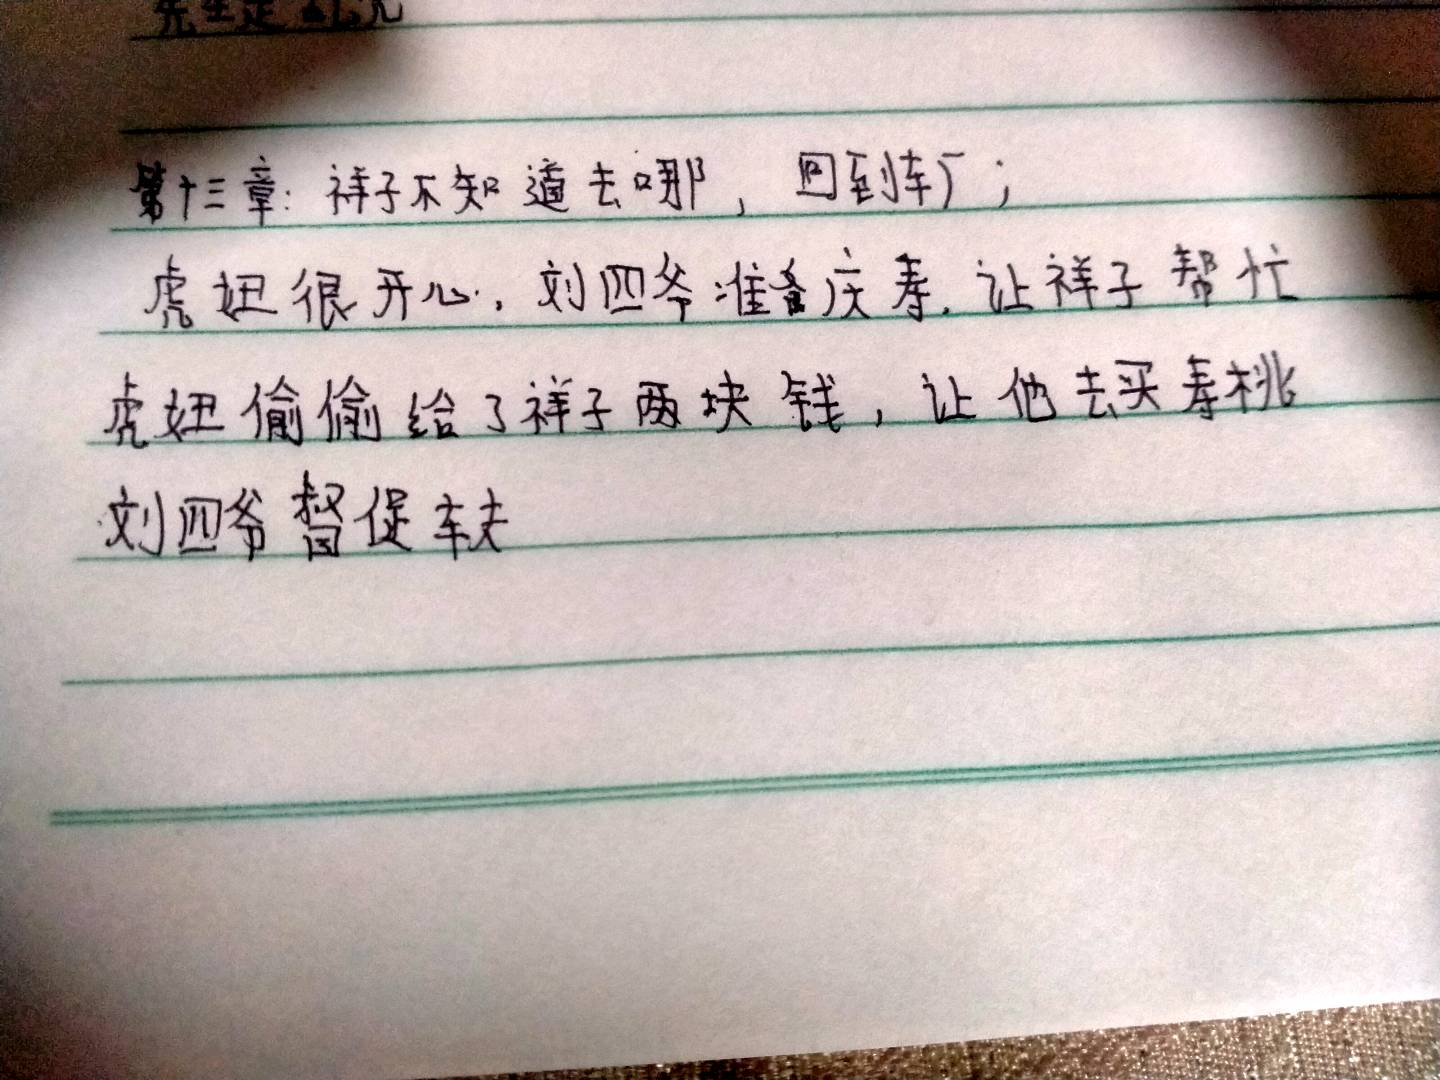 第十三章：祥子不知道去哪，回到车厂；
虎妞很开心，刘四爷准备庆寿，让祥子帮忙
虎妞偷偷给了祥子两块钱，让他去买寿桃
刘四爷督促车夫